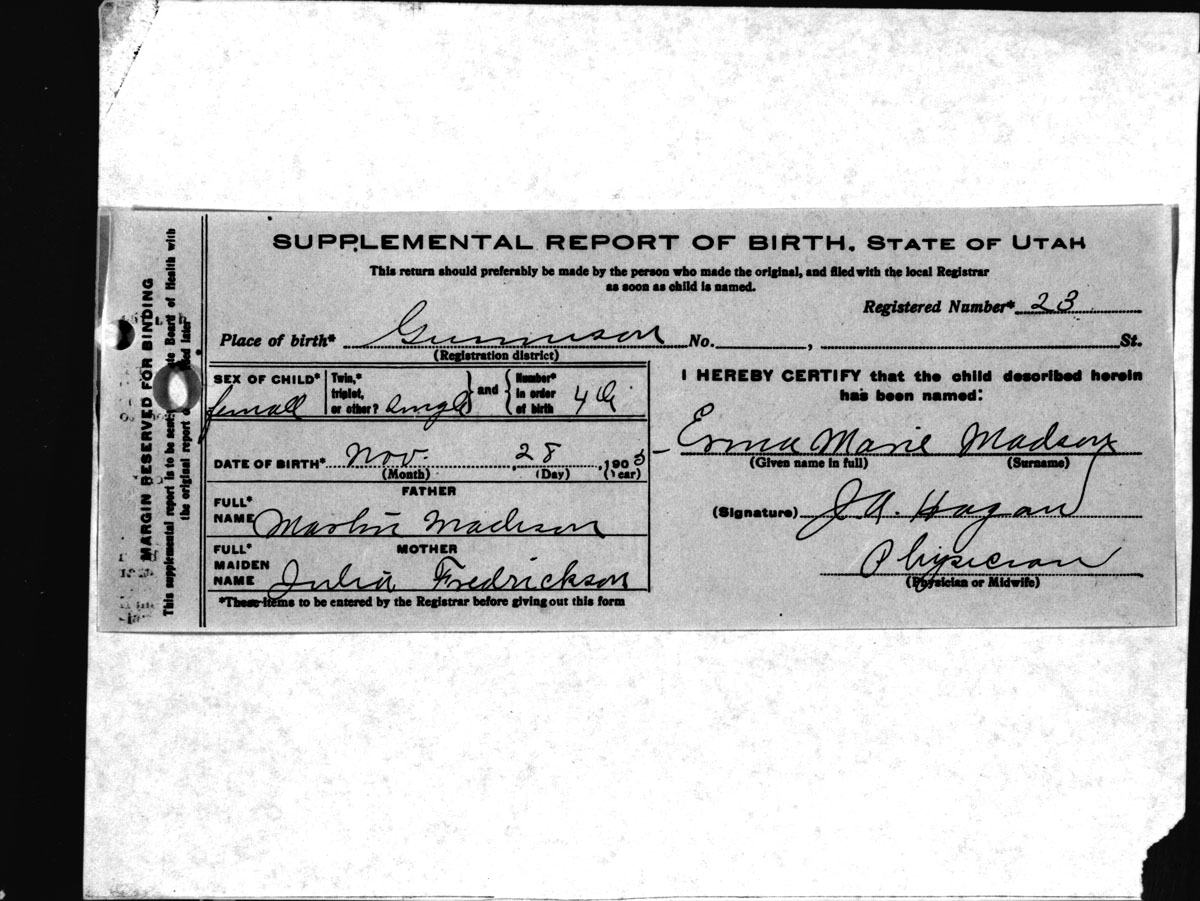 SUPPLEMENTAL REPORT OF BIRTH. STATE OF UTAH
This return should preferably be made by the person who made the original, and filed with the local Registrar
as soon as child is named.
Registered Number* 23
Place of birth* Gunnison No. , St.
(Registration district)
SEX OF CHILD* female
Twin,* triplet, or other? Single
and
Number* in order of birth 4th
DATE OF BIRTH* Nov. 28, 1905
(Month) (Day) (Year)
FATHER
FULL* NAME Martin Madison
MOTHER
FULL* MAIDEN NAME Julia Fredrickson
*These items to be entered by the Registrar before giving out this form
I HEREBY CERTIFY that the child described herein
has been named:
Erma Marie Madson
(Given name in full) (Surname)
(Signature) J.A. Hagan
Physician
(Physician or Midwife)
MARGIN RESERVED FOR BINDING
This supplemental report is to be sent Board of Health with
the original report